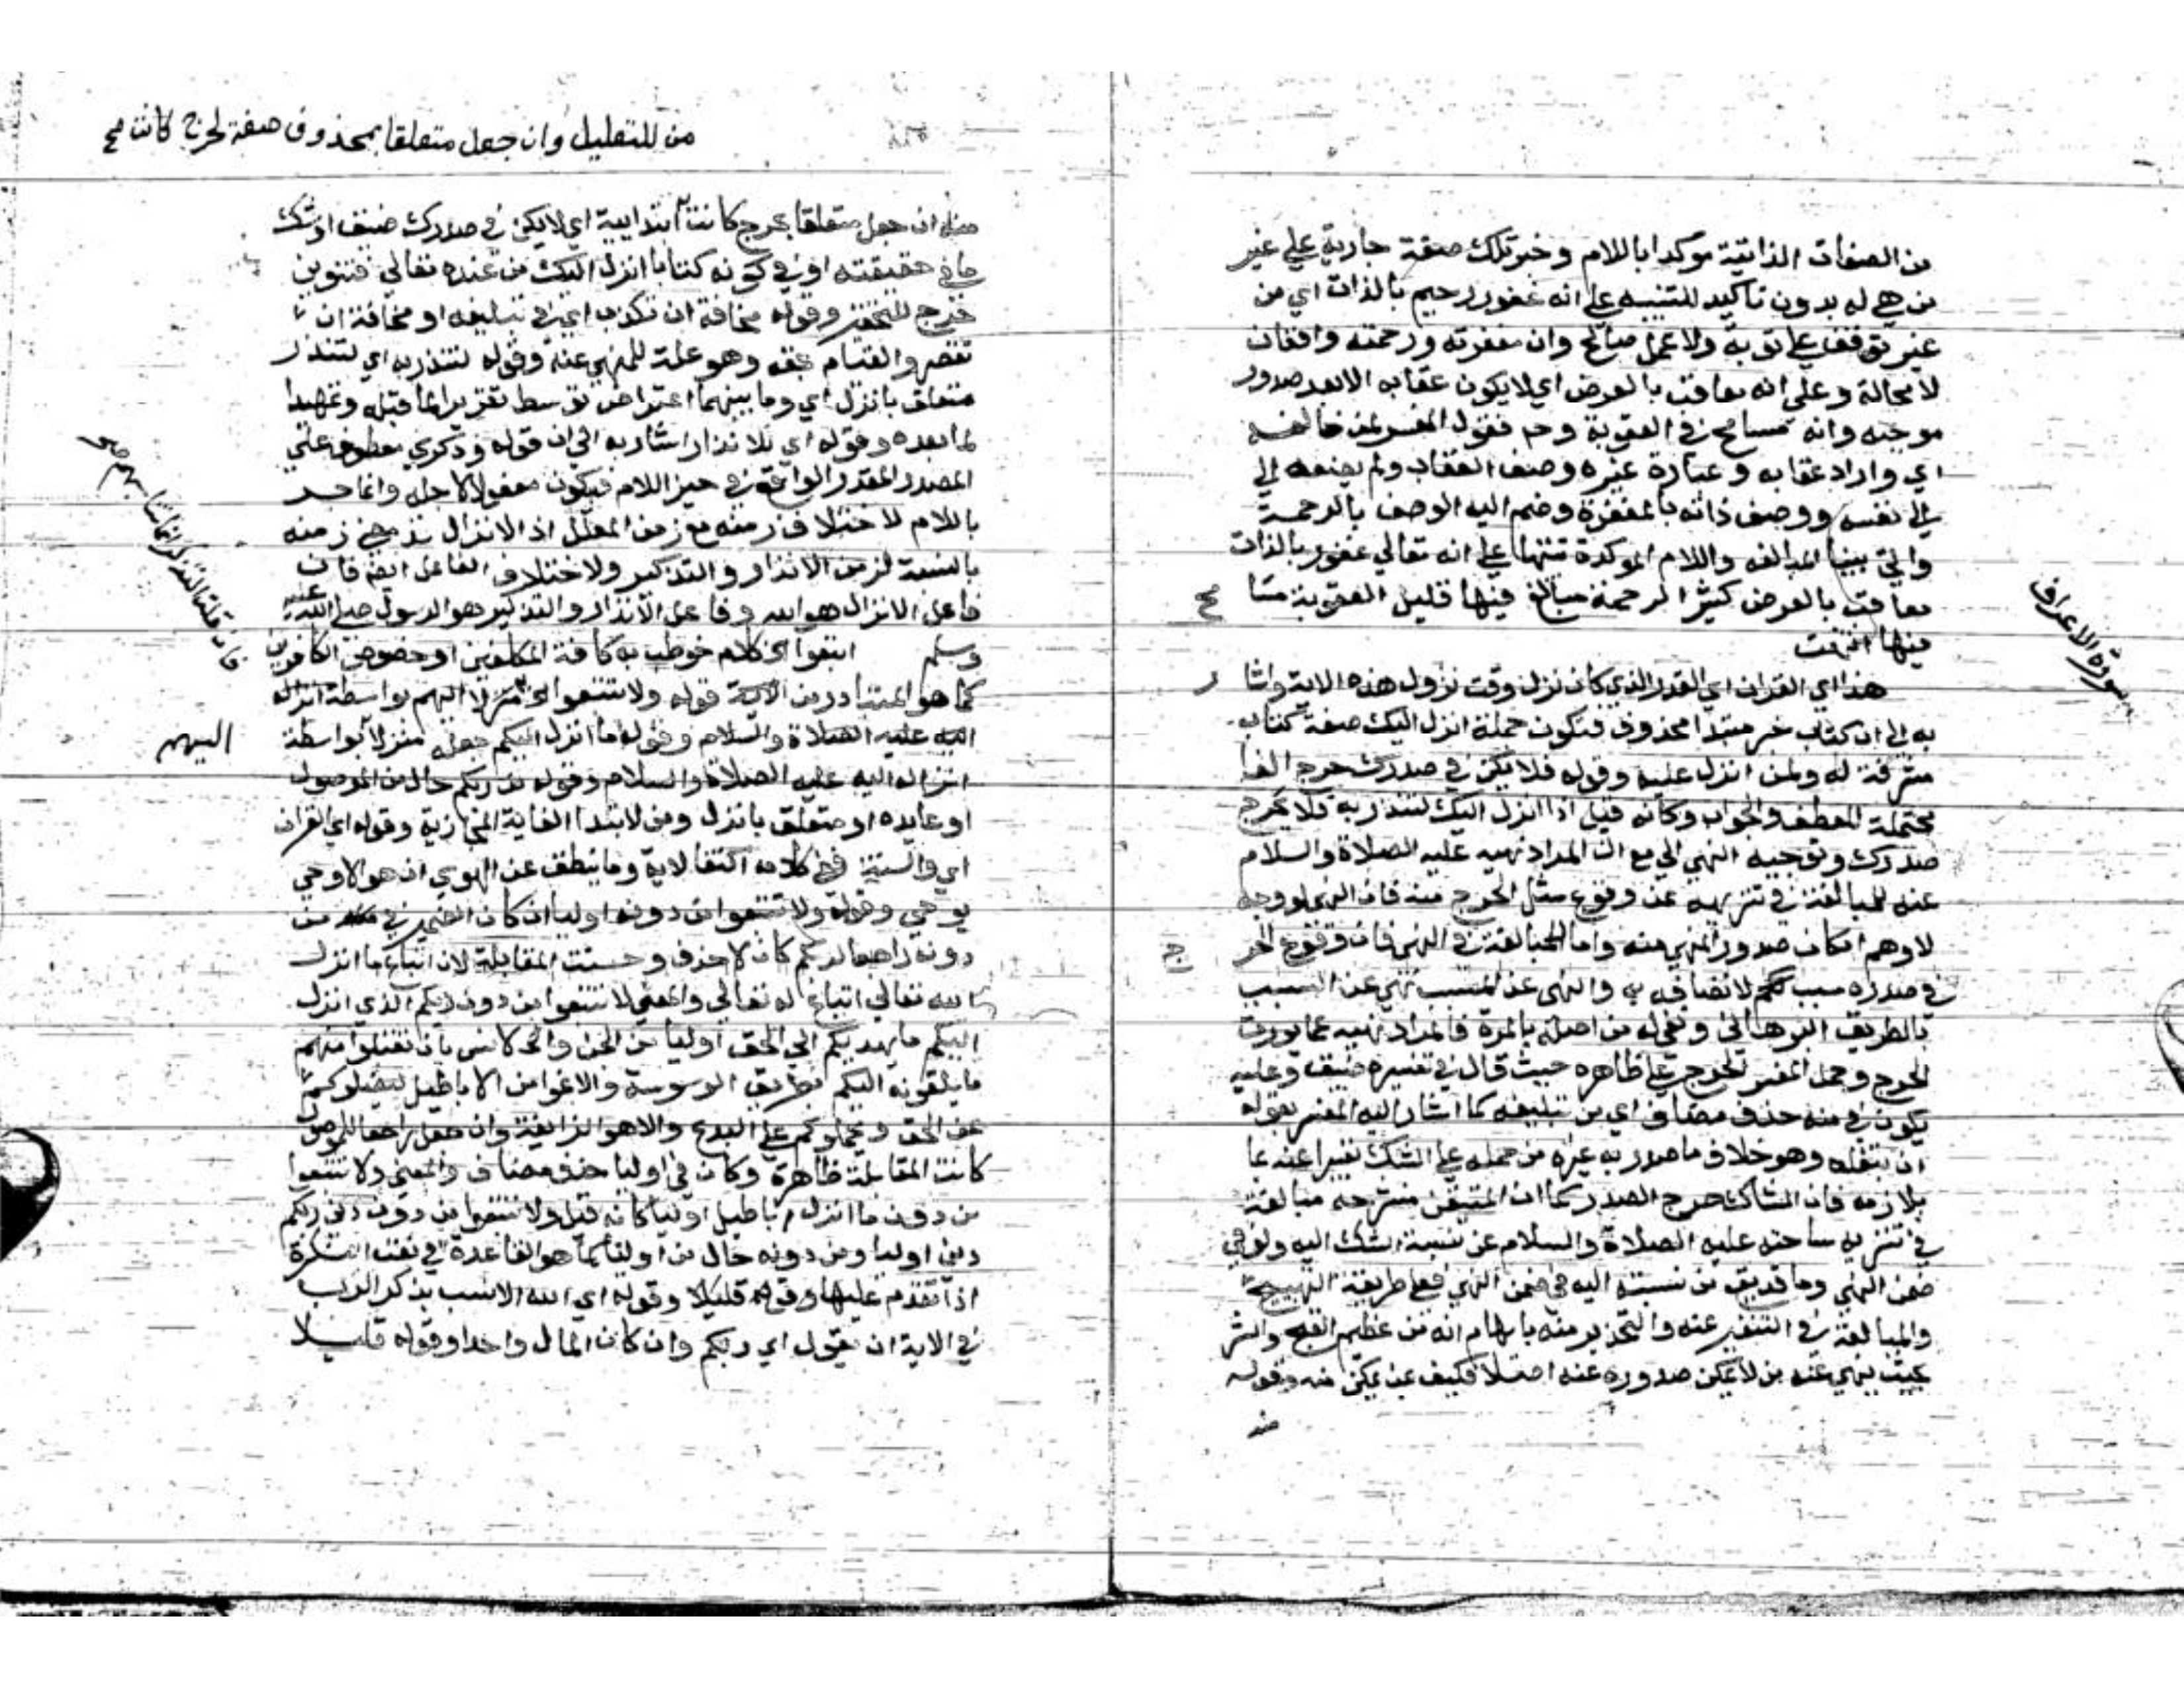 من الصفات الذاتية موكدا باللام وخبر تلك صفة جارية علي غير
من هي له بدون تاكيد للتنبيه علي انه غفور رحيم بالذات اي من
غير توقف علي توبة ولا عمل صالح وان مغفرته ورحمته واقعتان
لا محالة وعلي انه معاقب بالعرض اي لا يكون عقابه الا بعد صدور
موجبه وانه مسامح في العقوبة وح فقول المفسر لمن خالفه
اي واراد عقابه وعبارة غيره وصف العقاب ولم يضفه الي
الي نفسه ووصف ذاته بالمغفرة وضم اليه الوصف بالرحمة
واتي ببنا المبالغه واللام الموكدة تنبيها علي انه تعالي غفور بالذات
معاقب بالعرض كثير الرحمة مبالغ فيها قليل العقوبة مسامح
فيها انتهت
سورة الاعراف
هذا اي القران اي القدر الذي كان نزل وقت نزول هذه الاية واشار
به الي ان كتاب خبر مبتدا محذوف فتكون جملة انزل اليك صفة كتاب
مشرفة له ولمن انزل عليه وقوله فلا يكن في صدرك حرج الفا
محتملة للعطف والجواب وكانه قيل اذا انزل اليك لتنذر به فلا يحرج
صدرك وتوجيه النهي الي مع ان المراد نهيه عليه الصلاة والسلام
عنه للمبالغة في تنزيهه عن وقوع مثل الحرج منه فان النهي لو وجه
لاوهم امكان صدور المنهي منه واما المبالغة في النهي فان وقوع الحرج
في صدره سبب لاتصافه به والنهي عن السبب نهي عن المسبب
بالطريق البرهاني ونفي له من اصله بالمرة فالمراد نهيه عما يورث
الحرج وحمل المفسر الحرج علي ظاهره حيث قال في تفسيره ضيق وعليه
يكون في منه حذف مضاف اي من تبليغه كما اشار اليه المفسر بقوله
ان تبلغه وهو خلاف ما صدر به غيره من حمله علي الشك تعبيرا عنه بما
يلازمه فان الشاك حرج الصدر كما ان المتيقن منشرحه مبالغة
في تنزيه ساحته عليه الصلاة والسلام عن نسبة الشك اليه ولو في
ضمن النهي وما قد يقع من نسبته اليه في ضمن النهي فعلي طريقة التهييج
والمبالغة في التنفير عنه والتحذير منه بايهام انه من عظيم القبح والشر
بحيث ينهي عنه من لا يمكن صدوره عنه اصلا فكيف بمن يمكن منه وقوله
منه
من للتعليل وان جعل متعلقا بمحذوف صفة لحرج كانت صح
منه ان جعل متعلقا بحرج كانت ابتدايية اي لا يكن في صدرك ضيق او شك
ما في حقيقته او في كونه كتابا انزل اليك من عنده تعالي فتنوين
حرج للتحقير وقوله مخافة ان تكذب اي في تبليغه او مخافة ان
تقصر والقيام بحقه وهو علة للمنهي عنه وقوله لتنذر به اي لتنذر
متعلق بانزل اي وما بينهما اعتراض توسط تقريرا لما قبله وتمهيدا
لما بعده وقوله اي للانذار اشار به الي ان قوله وذكري معطوف علي
المصدر المقدر الواقع في حيز اللام فيكون مفعولا لاجله وانما جر
باللام لاختلاف زمنه مع زمن المعلل اذ الانزال قد مضي زمنه
بالنسبة لزمن الانذار والتذكير ولاختلاف الفاعل ايضا فان
فاعل الانزال هو الله وفاعل الانذار والتذكير هو الرسول صلي الله عليه
وسلم اتبعوا الخ كلام خوطب به كافة المكلفين او خصوص الكافرين
كما هو المتبادر من الاية قوله ولا تتبعوا الخ منزلا اليهم بواسطة انزاله
اليه عليه الصلاة والسلام وقوله ما انزل اليكم جعله منزلا بواسطة
اليهم
انزاله اليه عليه الصلاة والسلام وقوله من ربكم حال من الموصول
او عايده او متعلق بانزل ومن لابتدا الغاية المجازية وقوله اي القران
اي والسنة ففي كلامه اكتفا لاية وما ينطق عن الهوي ان هو الا وحي
يوحي وقوله ولا تتبعوا من دونه اوليا ان كان الضمير في من
دونه راجعا لربكم كان لا حذف وحسنت المقابلة لان اتباع ما انزل
الله تعالي اتباع له تعالي والمعني لا تتبعوا من دون ربكم الذي انزل
اليكم ما يهديكم الي الحق اوليا من الجن والانس بان تقبلوا منهم
ما يلقونه اليكم بطريق الوسوسة والاغوا من الاباطيل ليضلوكم
عن الحق ويحملوكم علي البدع والاهوا الزايغة وان جعل راجعا للموصول
كانت المقابلة ظاهرة وكان في اوليا حذف مضاف والمعني ولا تتبعوا
من دون ما انزل اباطيل اوليا كانه قيل ولا تتبعوا من دون دين ربكم
دين اوليا ومن دونه حال من اوليا كما هو القاعدة في نعت النكرة
اذا تقدم عليها وقوله قليلا وقوله اي الله الانسب بذكر الرب
في الاية ان يقول اي ربكم وان كان المال واحدا وقوله قليلا